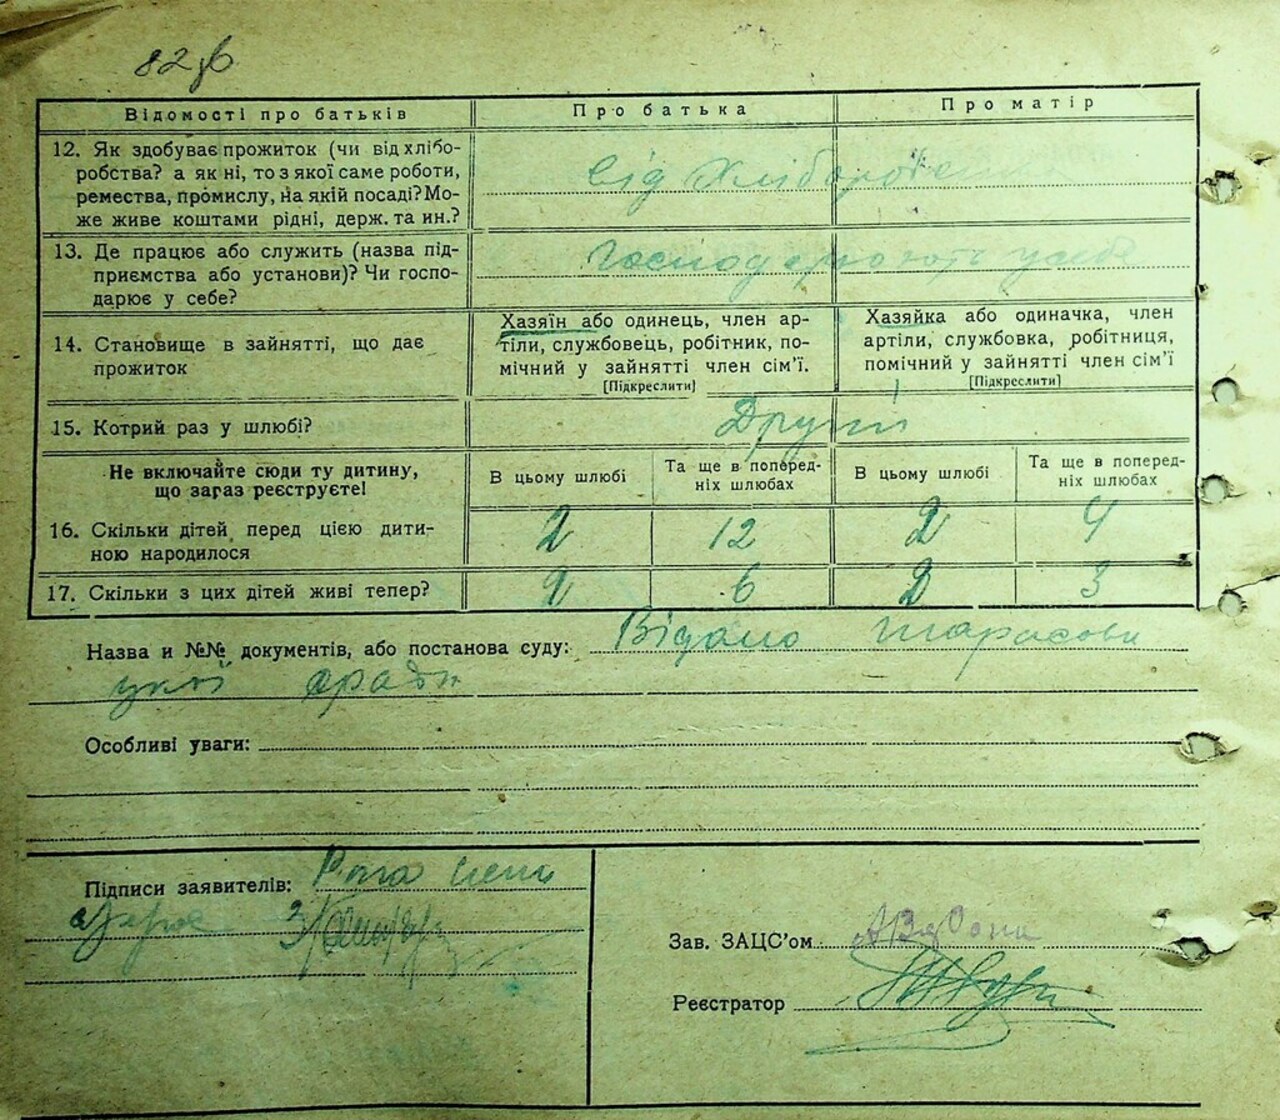 82 зв
Відомості про батьків Про батька Про матір
12. Як здобуває прожиток (чи від хлібо-
робства? а як ні, то з якої саме роботи,
ремества, промислу, на якій посаді? Мо-
же живе коштами рідні, держ. та ин.?
від Хліборобства
13. Де працює або служить (назва під-
приємства або установи)? Чи госпо-
дарює у себе?
Господарюють у себе
14. Становище в зайнятті, що дає
прожиток
Хазяїн або одинець, член ар-
тіли, службовець, робітник, по-
мічний у зайнятті член сім’ї.
[Підкреслити]
Хазяйка або одиначка, член
артіли, службовка, робітниця,
помічний у зайнятті член сім’ї
[Підкреслити]
15. Котрий раз у шлюбі? Другий
Не включайте сюди ту дитину,
що зараз реєструєте!
В цьому шлюбі
Та ще в поперед-
ніх шлюбах
В цьому шлюбі
Та ще в поперед-
ніх шлюбах
16. Скільки дітей перед цією дити-
ною народилося
2 12 2 4
17. Скільки з цих дітей живі тепер? 2 6 2 3
Назва и №№ документів, або постанова суду: Відомо
Особливі уваги:
Підписи заявителів:
Зав. ЗАЦС’ом
Реєстратор